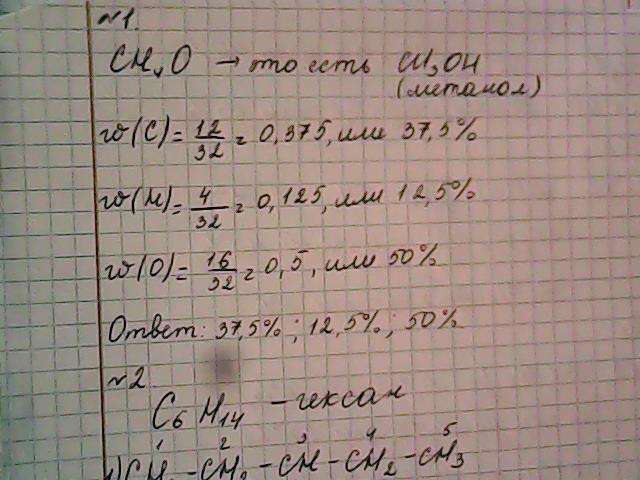 №1.
CH₄O → то есть CH₃OH
(метанол)
w(C) = 12/32 = 0,375, или 37,5%
w(H) = 4/32 = 0,125, или 12,5%
w(O) = 16/32 = 0,5, или 50%
Ответ: 37,5% ; 12,5% ; 50%
№2.
C₆H₁₄ – гексан
1 2 3 4 5
1) CH – CH₂ – CH – CH₂ – CH₃